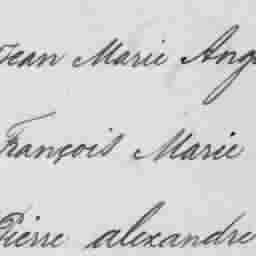 Jean Marie Ang
François Marie
Pierre alexandre